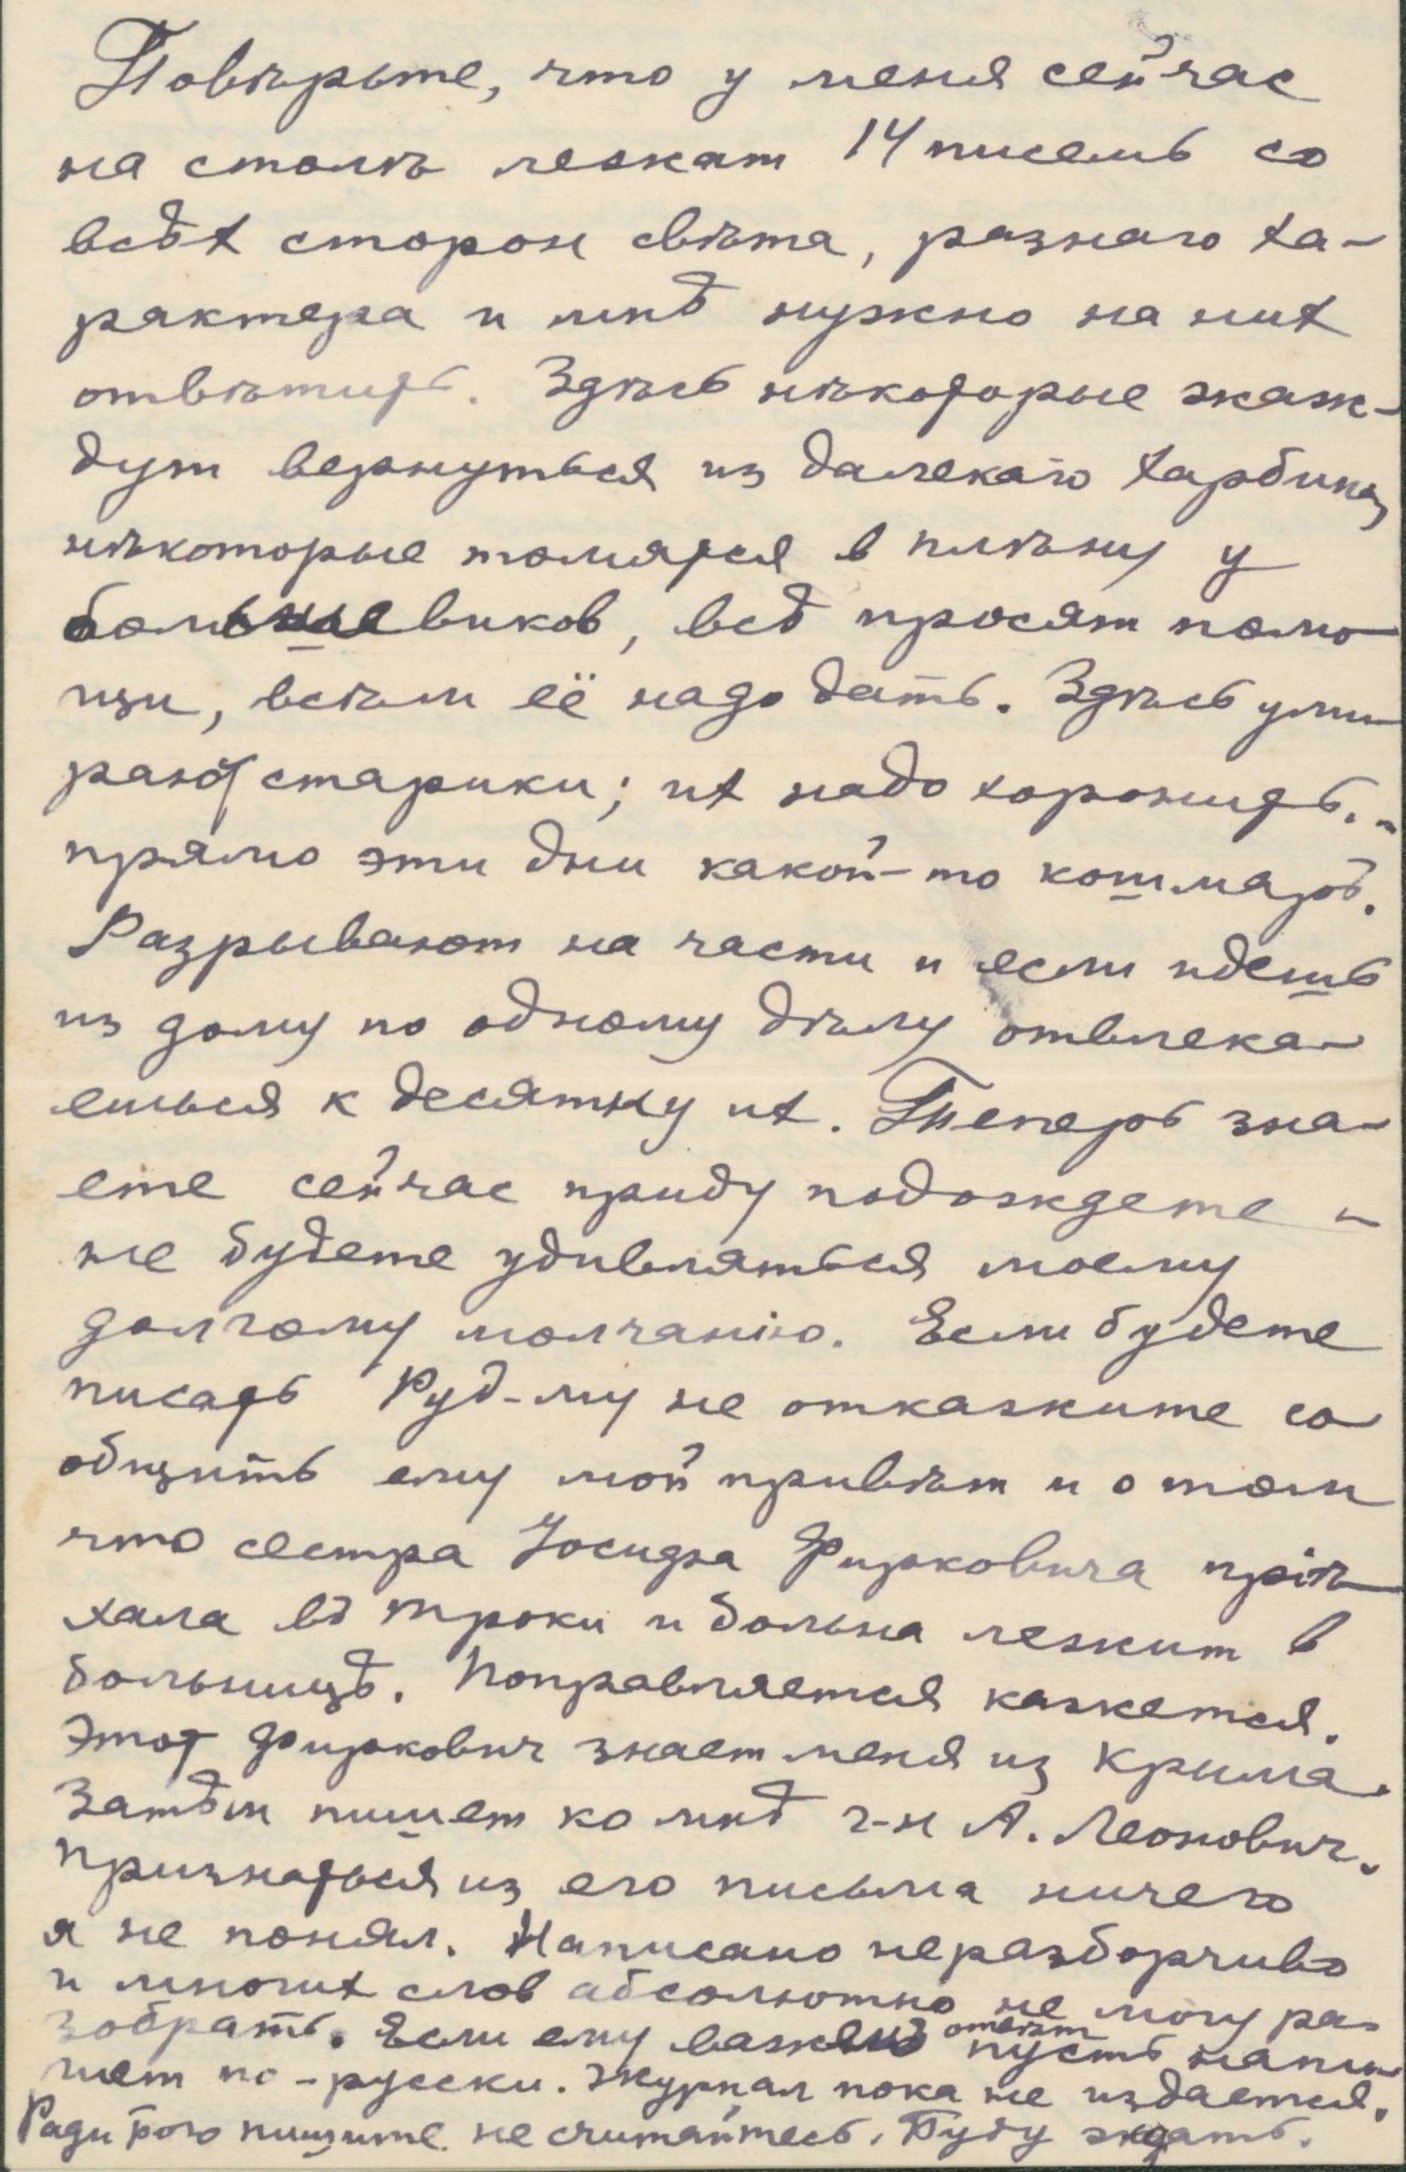 Повѣрьте, что у меня сейчас
на столѣ лежат 14 писемь со
всѣх сторон свѣта, разнаго ха-
рактера и мнѣ нужно на них
отвѣтить. Здѣсь нѣкоторые жаж-
дут вернуться из далекаго Харбина,
нѣкоторые томятся в плѣну у
большевиков, всѣ просят помо-
щи, всѣм её надо дать. Здѣсь уми-
рают старики; их надо хоронить. -
прямо эти дни какой-то кошмаръ.
Разрывают на части и если идешь
из дому по одному дѣлу отвлека-
ешься к десятку их. Теперь зна-
ете сейчас приду подождете -
не будете удивляться моему
долгому молчанію. Если будете
писать Руд-му не откажите со
общить ему мой привѣт и о том
что сестра Іосифа Фирковича пріѣ-
хала въ Троки и больна лежит в
больницѣ. Поправляется кажется.
Этот Фиркович знает меня из Крыма.
Затѣм пишет ко мнѣ г-н А. Леонович.
Признаться из его письма ничего
я не понял. Написано неразборчиво
и многих слов абсолютно не могу ра-
зобрать. Если ему важно отвѣт пусть напи-
шет по-русски. Журнал пока не издается.
Ради Бога пишите не считайтесь. Буду ждать.